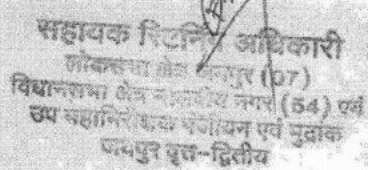 सहायक रिटर्निंग अधिकारी
लोकसभा क्षेत्र जयपुर (07)
विधानसभा क्षेत्र मालवीय नगर (54) एवं
उप महानिरीक्षक पंजीयन एवं मुद्रांक
जयपुर वृत्त-द्वितीय